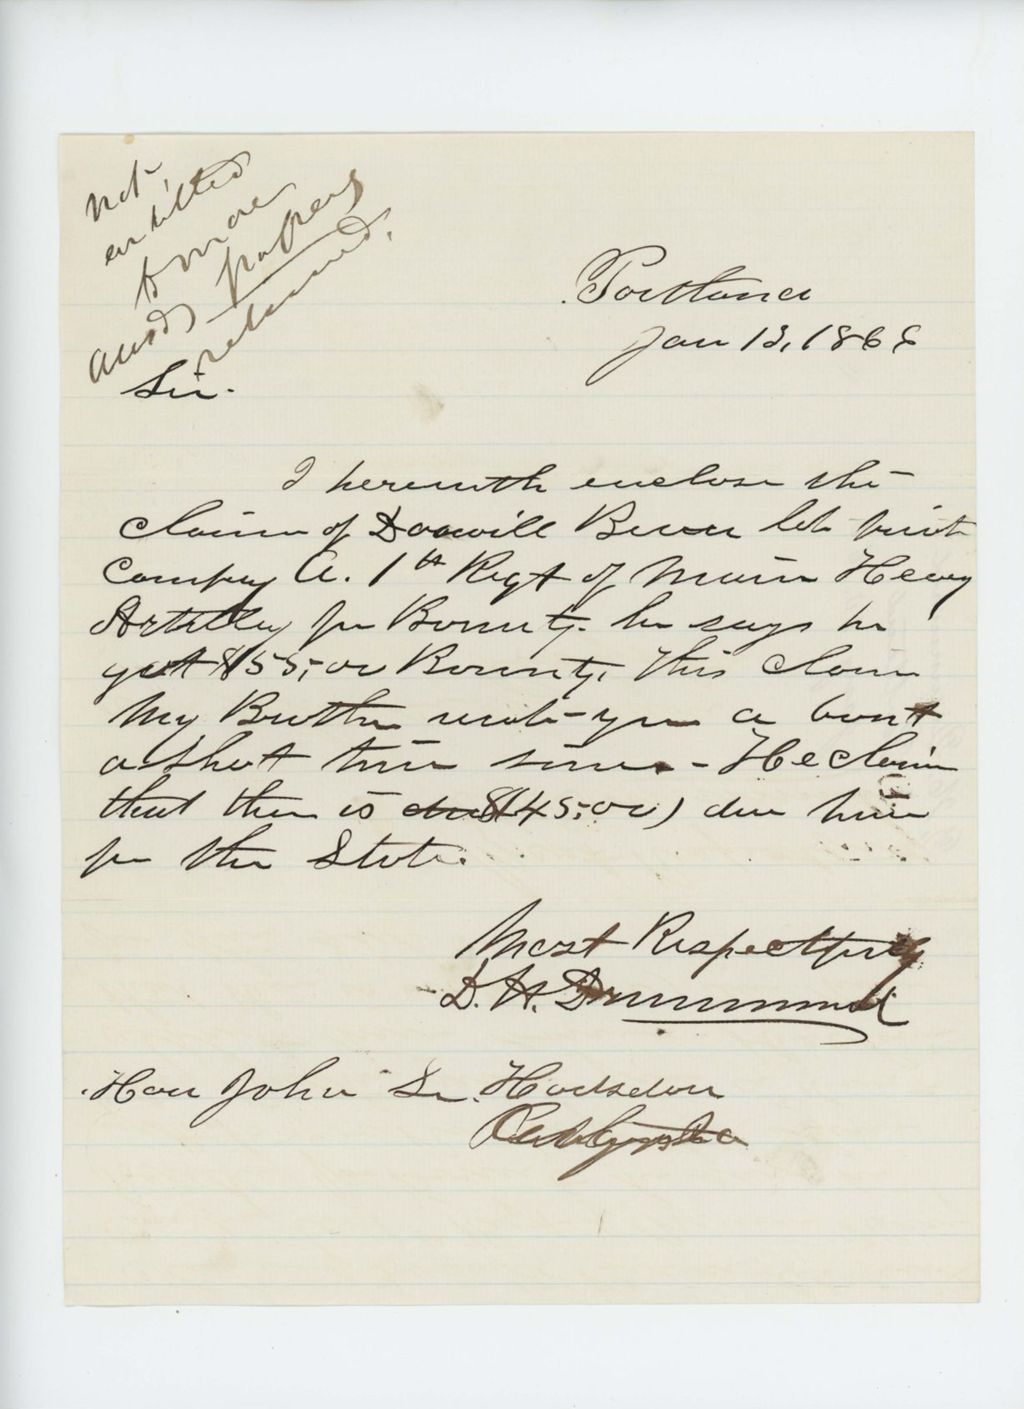 Not
entitled
to more
ans'd papers
returned.
Portland
Jan 13, 1866
Sir.
I herewith enclose the
claim of Brown late private
Company A. 1st Regt of Maine Heavy
Artillery for Bounty. he says he
got $55,00 Bounty. This claim
My Brother wrote you a bout
a short time since - He claim
that there is $45,00) due him
for the State.
Most Respectfully
D. H. Drummond
Hon John L. Hodsdon